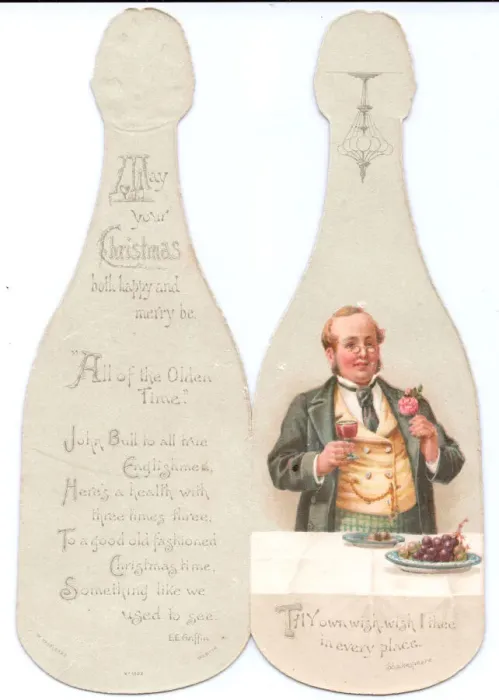 May
your
Christmas
both happy and
merry be.
"All of the Olden
Time."
John Bull to all true
Englishmen,
Here's a health with
three times three,
To a good old fashioned
Christmas time,
Something like we
used to see.
E.E. Griffin
THY own wish, wish I thee
in every place.
Shakespeare